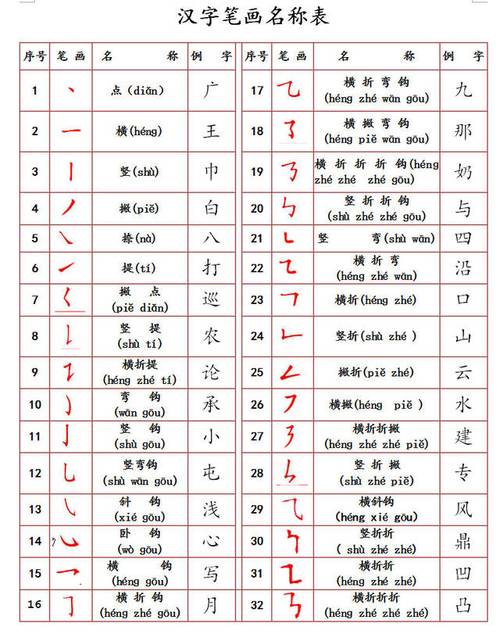 汉字笔画名称表
序号 笔 画 名 称 例 字
1 点（diǎn） 广
2 横(héng) 王
3 竖(shù) 巾
4 撇(piě) 白
5 捺(nà) 八
6 提(tí) 打
7 撇 点 巡
(piě diǎn)
8 竖 提 农
(shù tí)
9 横折提 论
(héng zhé tí)
10 弯 钩 承
(wān gōu)
11 竖 钩 小
(shù gōu)
12 竖弯钩 屯
(shù wān gōu)
13 斜 钩 浅
(xié gōu)
14 卧 钩 心
(wò gōu)
15 横 钩 写
(héng gōu)
16 横 折 钩 月
(héng zhé gōu)
序号 笔 画 名 称 例 字
17 横 折 弯 钩 九
(héng zhé wān gōu)
18 横 撇 弯 钩 那
(héng piě wān gōu)
19 横 折 折 折 钩(héng 奶
zhé zhé zhé gōu)
20 竖 折 折 钩 与
(shù zhé zhé gōu)
21 竖 弯(shù wān) 四
22 横 折 弯 沿
(héng zhé wān)
23 横折(héng zhé) 口
24 竖折(shù zhé ) 山
25 撇折(piě zhé) 云
26 横撇(héng piě ) 水
27 横折折撇 建
(héng zhé zhé piě)
28 竖 折 撇 专
(shù zhé piě)
29 横斜钩 风
(héng xié gōu)
30 竖折折 鼎
( shù zhé zhé)
31 横折折 凹
(héng zhé zhé)
32 横折折折 凸
(héng zhé zhé zhé)